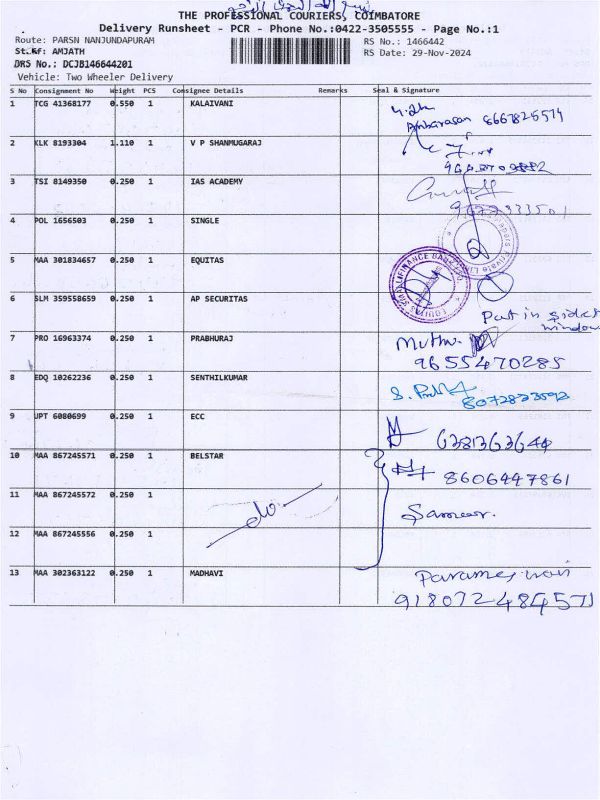 بسم الله الرحمن الرحيم
THE PROFESSIONAL COURIERS, COIMBATORE
Delivery Runsheet - PCR - Phone No.:0422-3505555 - Page No.:1
Route: PARSN NANJUNDAPURAM
RS No.: 1466442
St.Rf: AMJATH
RS Date: 29-Nov-2024
DRS No.: DCJB146644201
Vehicle: Two Wheeler Delivery
S No Consignment No Weight PCS Consignee Details Remarks Seal & Signature
1 TCG 41368177 0.550 1 KALAIVANI
Ambarasan 8667825574
2 KLK 8193304 1.110 1 V P SHANMUGARAJ
3 TSI 8149350 0.250 1 IAS ACADEMY
4 POL 1656503 0.250 1 SINGLE
5 MAA 301834657 0.250 1 EQUITAS
6 SLM 359558659 0.250 1 AP SECURITAS
Put in side
window
7 PRO 16963374 0.250 1 PRABHURAJ Muthu.
9655470285
8 EDQ 10262236 0.250 1 SENTHILKUMAR
8072823592
9 JPT 6080699 0.250 1 ECC 6381363644
10 MAA 867245571 0.250 1 BELSTAR
8606447861
11 MAA 867245572 0.250 1
do Sameer.
12 MAA 867245556 0.250 1
13 MAA 302363122 0.250 1 MADHAVI Parameswari
918072484571